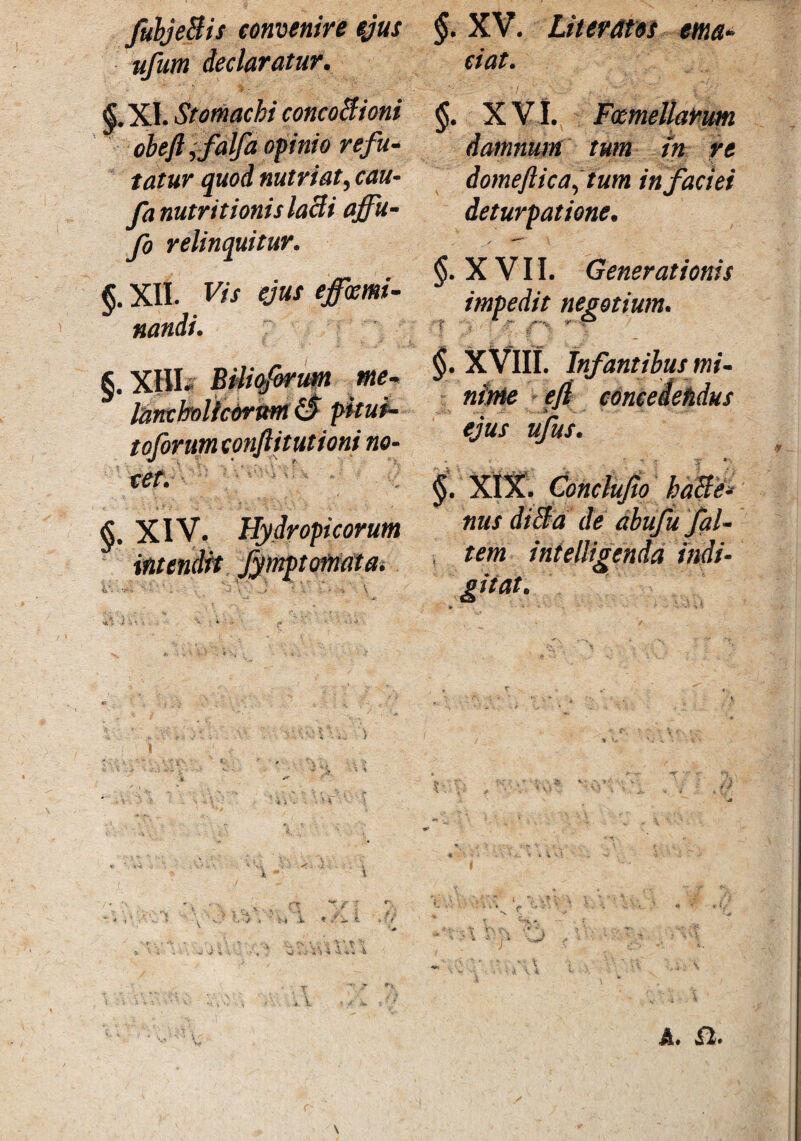 ſubjectis convenire ejus
uſum declaratur.
§. XI. Stomachi concoctioni
obeſt, falſa opinio refu-
tatur quod nutriat, cau-
ſa nutritionis lacti affu-
ſo relinquitur.
§. XII. Vis ejus effœmi-
nandi.
§. XIII. Bilioſorum me-
lancholicorum & pitui-
toſorum conſtitutioni no-
cet.
§. XIV. Hydropicorum
intendit ſymptomata.
§. XV. Literatos ema-
ciat.
§. XVI. Fœmellarum
damnum tum in re
domeſtica, tum in faciei
deturpatione.
§. XVII. Generationis
impedit negotium.
§. XVIII. Infantibus mi-
nime eſt concedendus
ejus uſus.
§. XIX. Concluſio hacte-
nus dicta de abuſu ſal-
tem intelligenda indi-
gitat.
A. Ω.